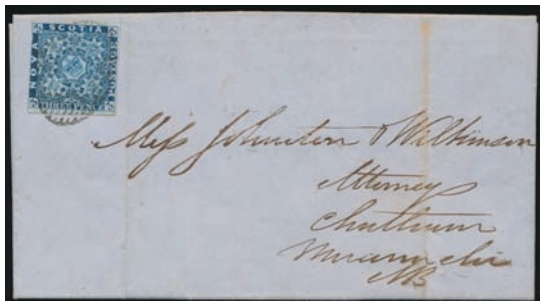 NOVA SCOTIA POSTAGE
THREE PENCE
Mess Johnston & Wilkinson
Attorney
Chatham
Miramichi
NB